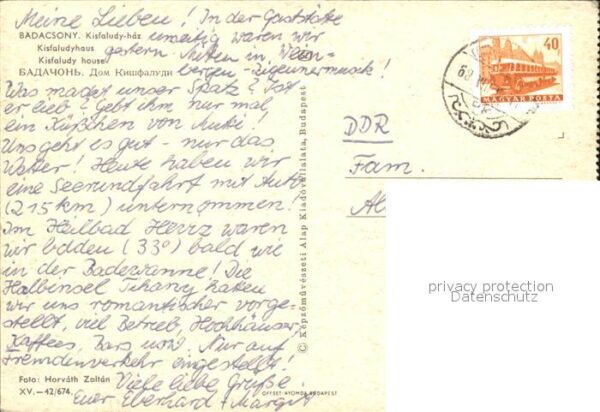 Meine Lieben! In der Gaststäte
BADACSONY. Kisfaludy-ház unseitig waren wir
Kisfaludyhaus gestern. Mitten in Wein-
Kisfaludy house
БАДАЧОНЬ. Дом Кишфалуди bergen - Zigeunermusik!
Was macht unser Spatz? Ist
er lieb? Gebt ihm nur mal
ein Küßchen von Mutti!
Uns geht es gut - nur das
Wetter! Heute haben wir
eine Seerundfahrt mit Auto
(215 km) unternommen!
Im Heilbad Herrz waren
wir baden (33°) bald wie
in der Badewanne! Die
Halbinsel Tihany hatten
wir uns romantischer vorge-
stellt, viel Betrieb, Hochhäuser,
Kaffees, Bars usw. Nur auf
Fremdenverkehr eingestellt!
Foto: Horváth Zoltán Viele liebe Grüße.
XV.—42/674. Euer Eberhard + Margit
OFFSET-NYOMDA BUDAPEST
© Képzőművészeti Alap Kiadóvállalata, Budapest
40
MAGYAR POSTA
DDR
Fam.
privacy protection
Datenschutz